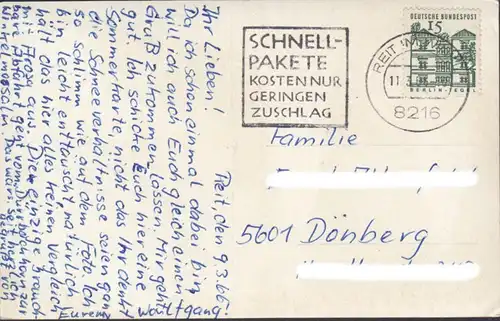 Reit, den 9.3.66.
Ihr Lieben!
Da ich schon einmal dabei bin,
will ich auch Euch gleich einen
Gruß zukommen lassen. Mir geht's
gut. Ich schicke Euch hier eine
Sommerkarte, nicht das Ihr denkt
die Schneeverhältnisse seien ganz
so schlimm wie auf dem Foto. Ich
bin leicht enttäuscht natürlich
hält das hier alles keinen Vergleich
mit Arosa aus. Die einzige brauch-
bare Abfahrt geht vom Dürrnbachhorn zur
Winkelmoosalm. Das wärs. Seid herzlich
gegrüßt von
Eurem
Wolfgang!
SCHNELL-
PAKETE
KOSTEN NUR
GERINGEN
ZUSCHLAG
REIT IM
11.
8216
15
DEUTSCHE BUNDESPOST
BERLIN-TEGEL
Familie
5601 Dönberg